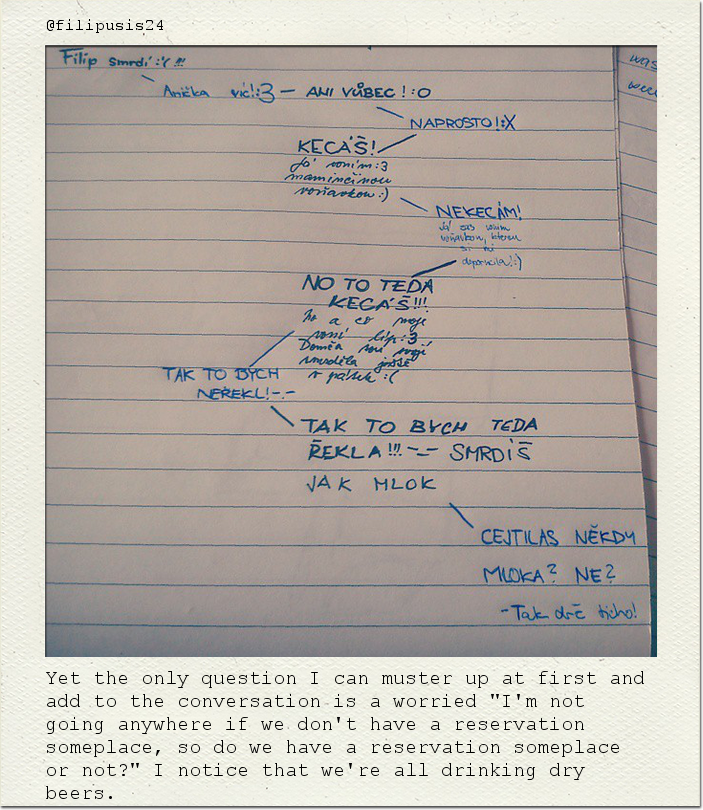 @filipusis24
Filip smrdí :'( !!!
Anička víc! :3 — ANI VŮBEC! :O
NAPROSTO! :X
KECÁŠ!
Já voním :3
maminčinou
voňavkou :)
NEKECÁM!
Já zas voním
voňavkou, kterou
si mi
doporučila! :)
NO TO TEDA
KECÁŠ!!!
No a co moje
voní líp :3
Doměla
smrděla ještě
v pátek :(
TAK TO BYCH
NEŘEKL! -.-
TAK TO BYCH TEDA
ŘEKLA!!! -.- SMRDÍŠ
JAK MLOK
CEJTILAS NĚKDY
MLOKA? NE?
- Tak drž ticho!
was
Yet the only question I can muster up at first and
add to the conversation is a worried "I'm not
going anywhere if we don't have a reservation
someplace, so do we have a reservation someplace
or not?" I notice that we're all drinking dry
beers.